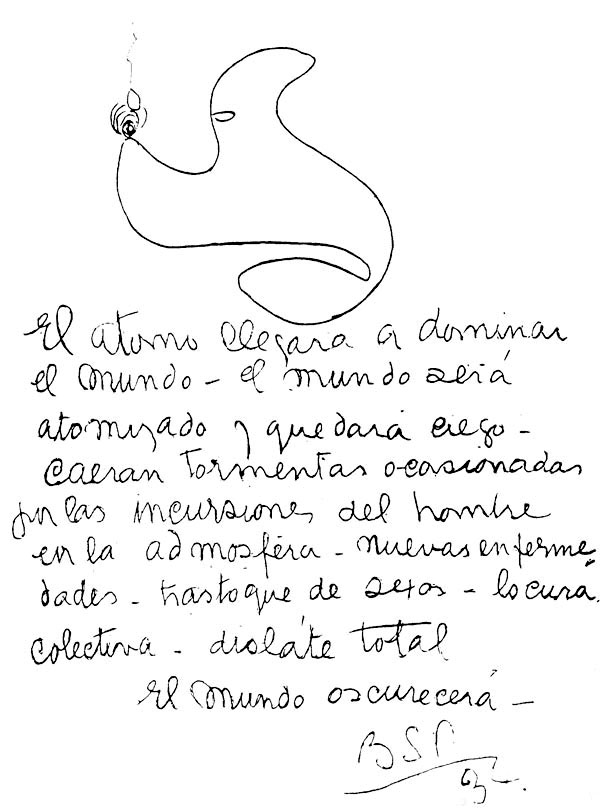 El atomo llegara a dominar
el mundo - el mundo será
atomizado y quedará ciego -
Caeran Tormentas ocasionadas
por las incursiones del hombre
en la admosféra - nuevas enferme
dades - trastoque de sexos - locura
colectiva - disláte total
El mundo oscurecerá -
BSP